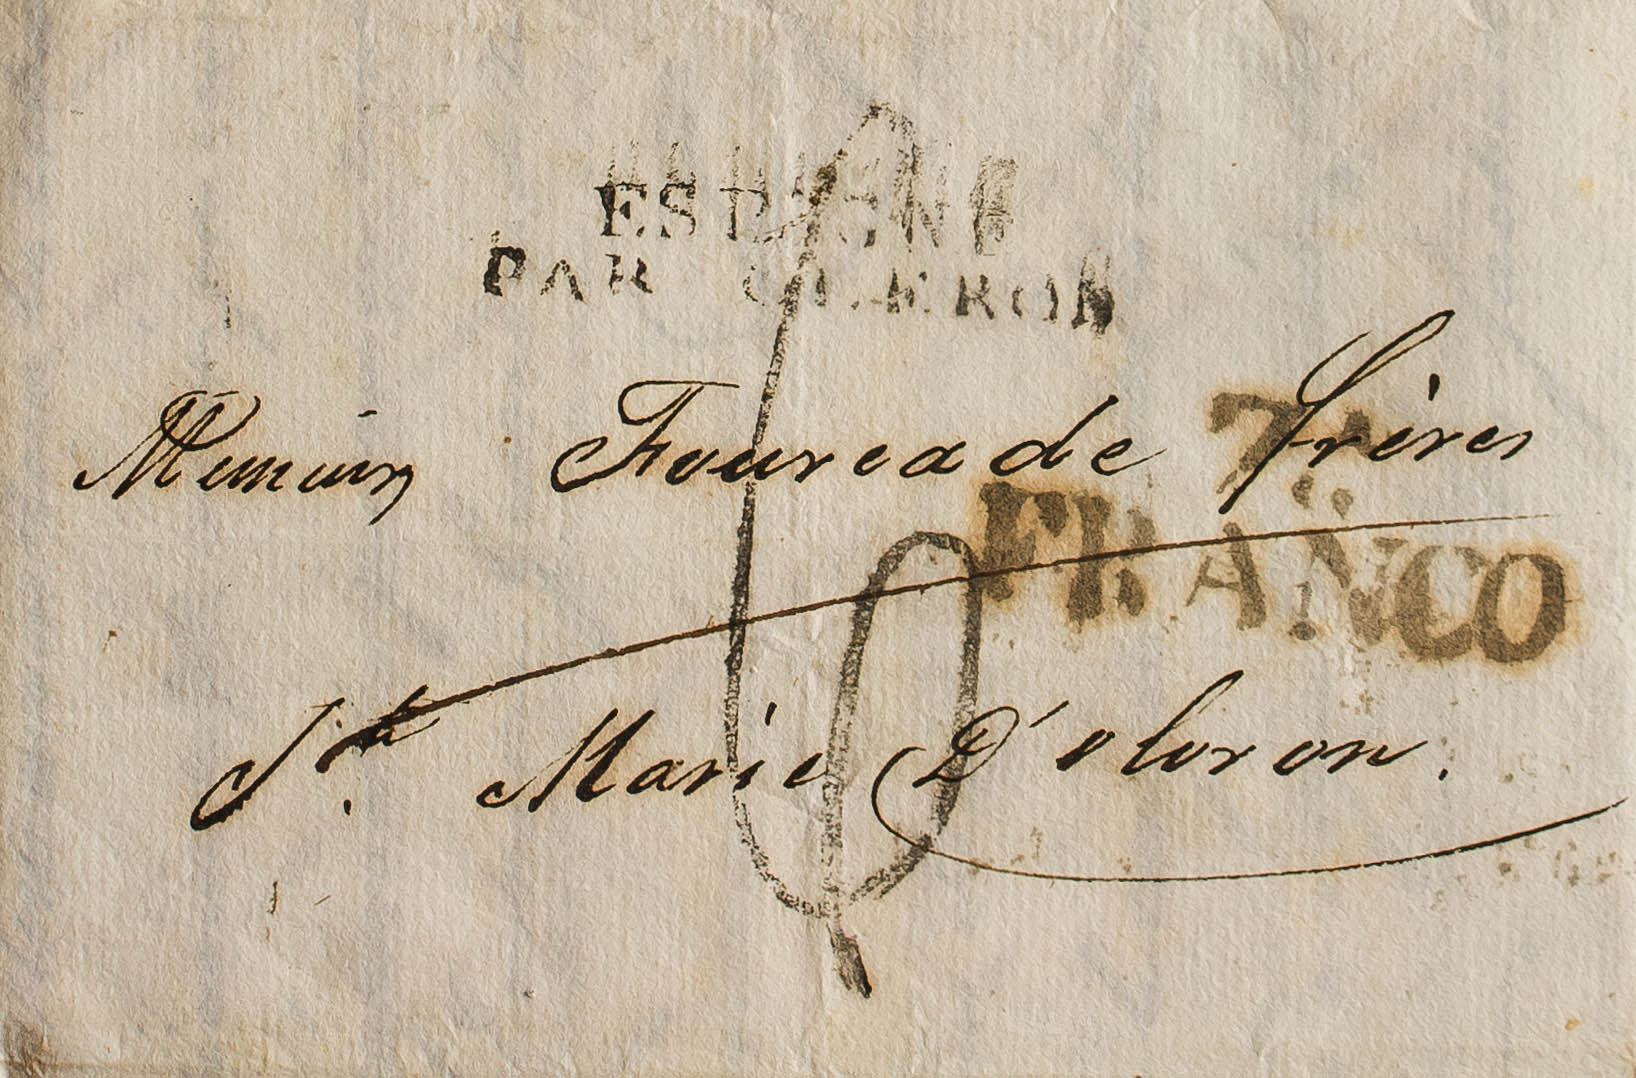 ESPAGNE
PAR OLERON
Messieurs Fourcade frères
FRANCO
6
Ste. Marie D'oloron.